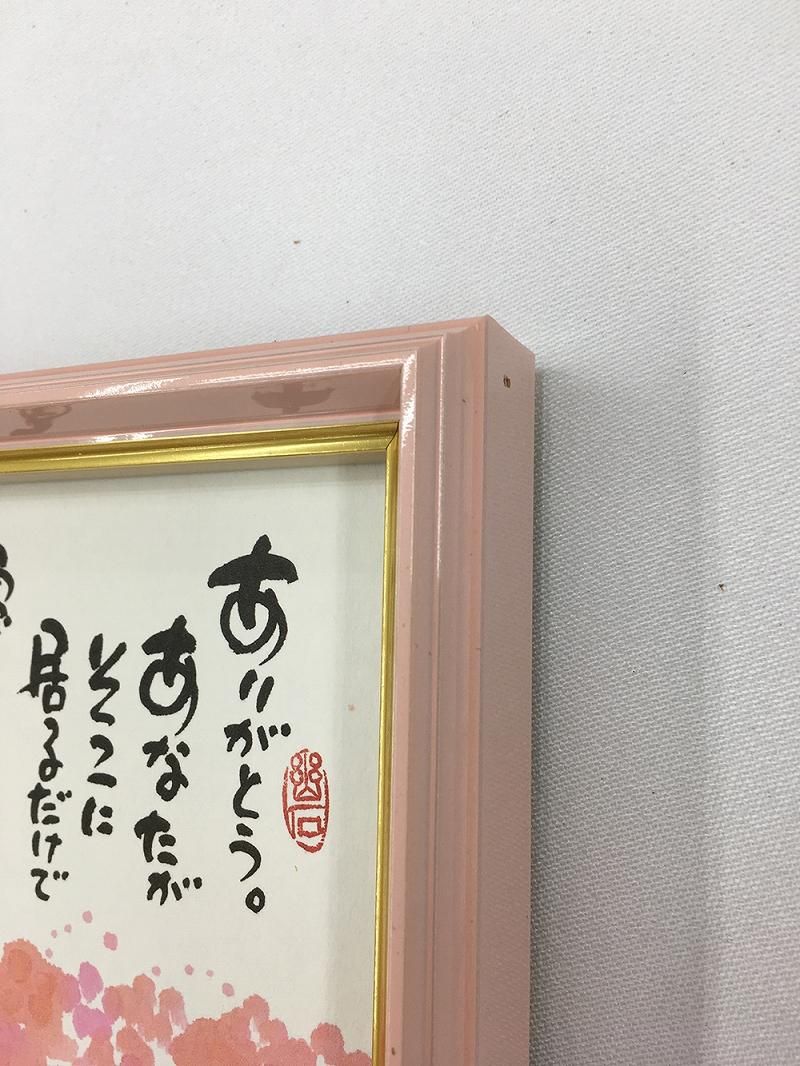 ありがとう。
あなたが
そこに
居るだけで